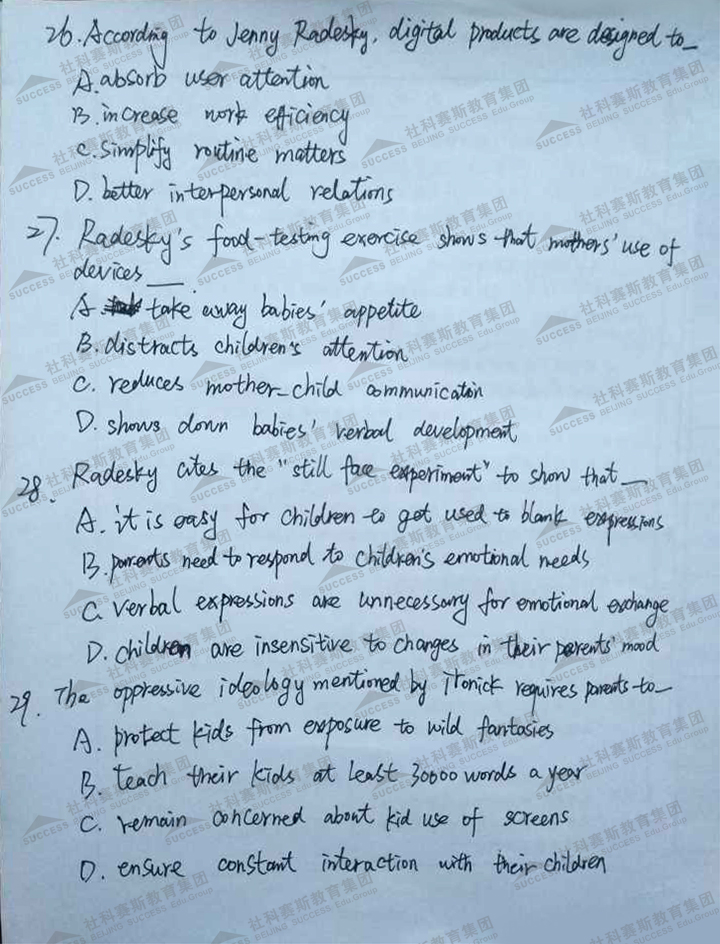 26. According to Jenny Radesky, digital products are designed to_
A. absorb user attention
B. increase work efficiency
C. simplify routine matters
D. better interpersonal relations
27. Radesky's food-testing exercise shows that mothers' use of
devices___.
A. take away babies' appetite
B. distracts children's attention
C. reduces mother-child communication
D. shows down babies' verbal development
28. Radesky cites the "still face experiment" to show that__
A. it is easy for children to get used to blank expressions
B. parents need to respond to children's emotional needs
C. verbal expressions are unnecessary for emotional exchange
D. children are insensitive to changes in their parents' mood
29. The oppressive ideology mentioned by iTonick requires parents to_
A. protect kids from exposure to wild fantasies
B. teach their kids at least 30000 words a year
C. remain concerned about kid use of screens
D. ensure constant interaction with their children
社科赛斯教育集团
SUCCESS BEIJING SUCCESS Edu.Group